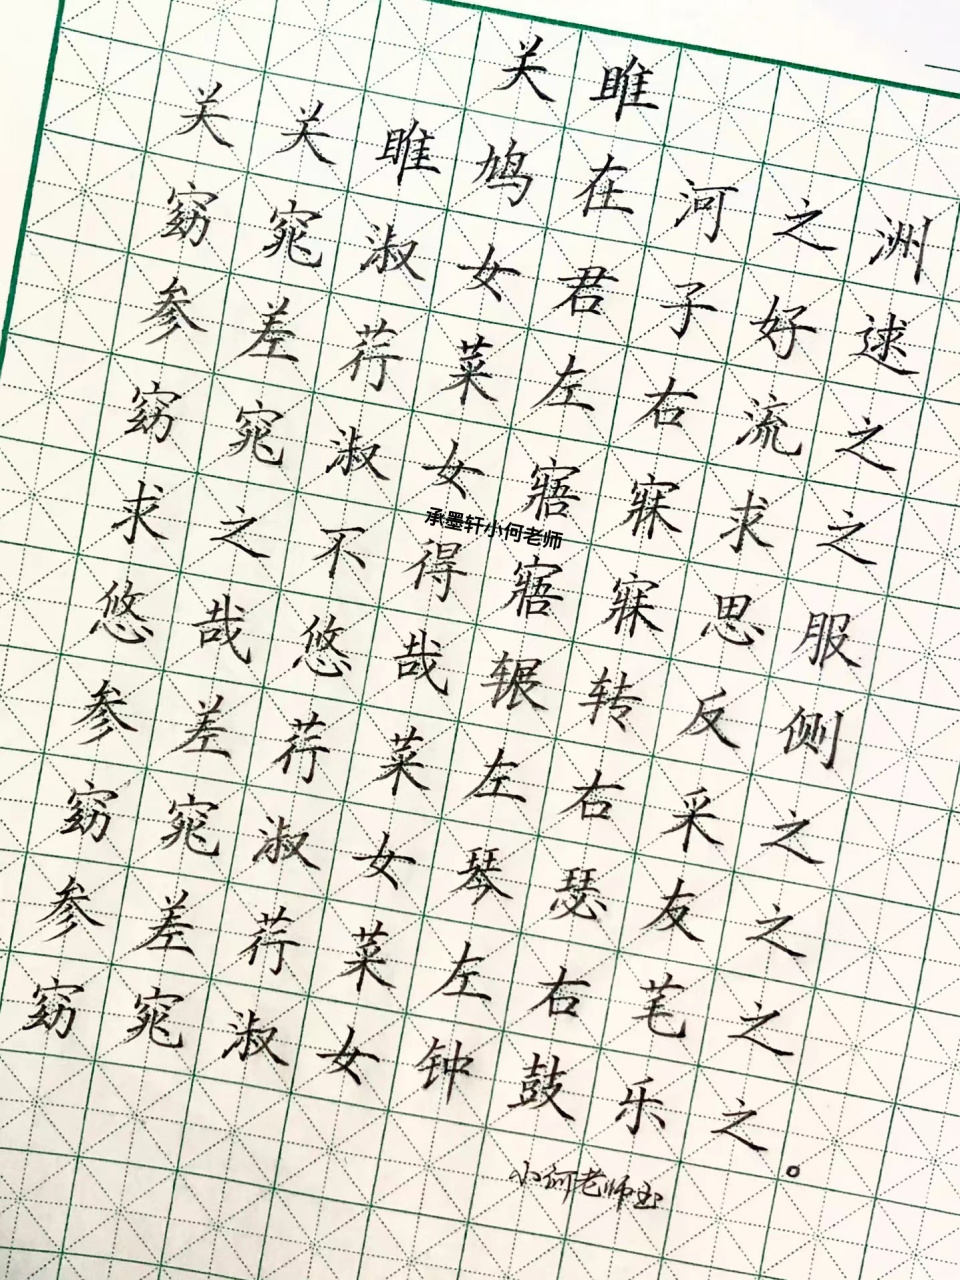 关雎
关关雎鸠在河之洲
窈窕淑女君子好逑
参差荇菜左右流之
窈窕淑女寤寐求之
求之不得寤寐思服
悠哉悠哉辗转反侧
参差荇菜左右采之
窈窕淑女琴瑟友之
参差荇菜左右芼之
窈窕淑女钟鼓乐之。
小何老师书
承墨轩小何老师